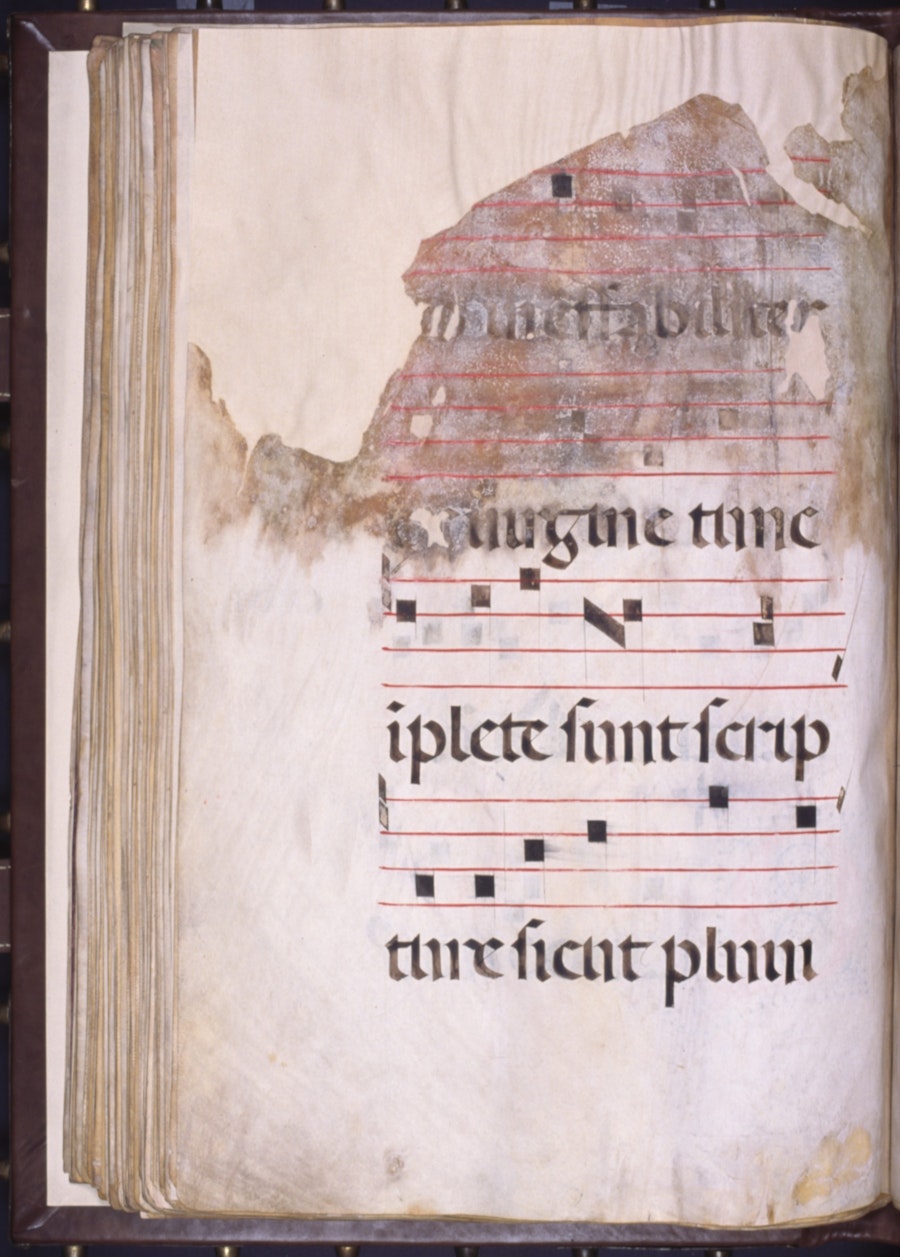 ineffabiliter
ex uirgine tunc
iplete sunt scrip
ture sicut pluui